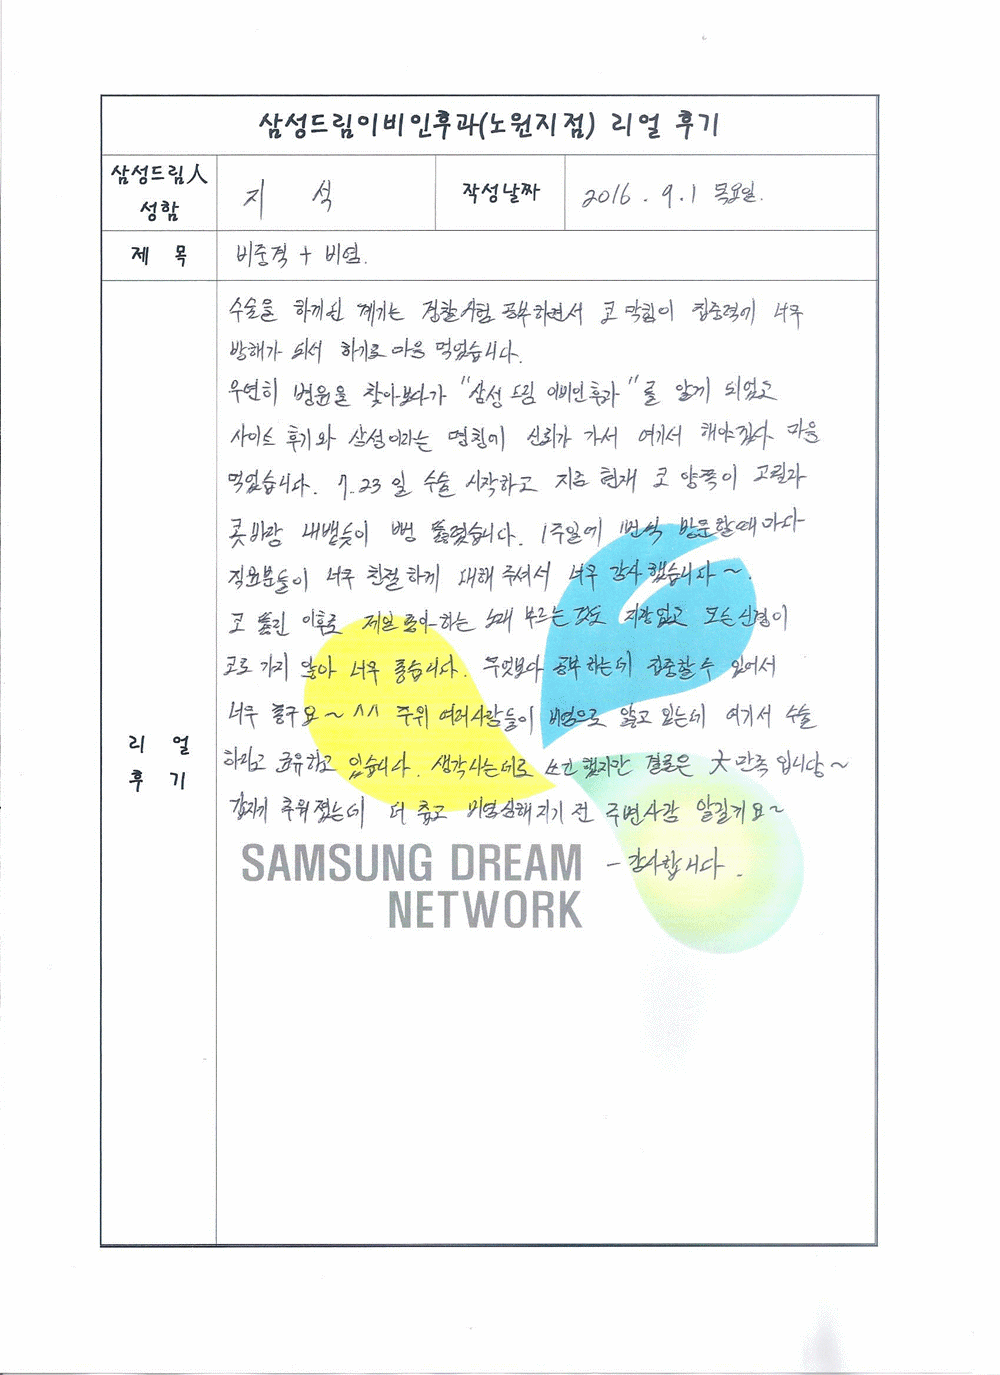 삼성드림이비인후과(노원지점) 리얼 후기
삼성드림人
성함
지 석
작성날짜
2016. 9. 1 목요일.
제 목
비중격 + 비염.
리 얼
후 기
수술을 하게된 계기는 경찰시험 공부하면서 코 막힘이 집중력에 너무
방해가 되서 하기로 마음 먹었습니다.
우연히 병원을 찾아보다가 "삼성드림 이비인후과"를 알게 되었고
사이트 후기와 삼성이라는 명칭이 신뢰가 가서 여기서 해야겠다 마음
먹었습니다. 7.23일 수술 시작하고 지금 현재 코 양쪽이 고릴라
콧바람 내뱉듯이 뻥 뚫렸습니다. 1주일에 1번씩 방문할때마다
직원분들이 너무 친절하게 대해 주셔서 너무 감사했습니다~.
코 뚫린 이후로 제일 좋아하는 노래 부르는 것도 지장없고 모든신경이
코로 가지 않아 너무 좋습니다. 무엇보다 공부하는데 집중할 수 있어서
너무 좋구요~^^ 주위 여러사람들이 비염으로 앓고 있는데 여기서 수술
하라고 권유하고 있습니다. 생각나는대로 쓰긴 했지만 결론은 大만족입니당~
갑자기 추워졌는데 더 춥고 비염심해지기 전 주변사람 알릴게요~
- 감사합니다.
SAMSUNG DREAM
NETWORK